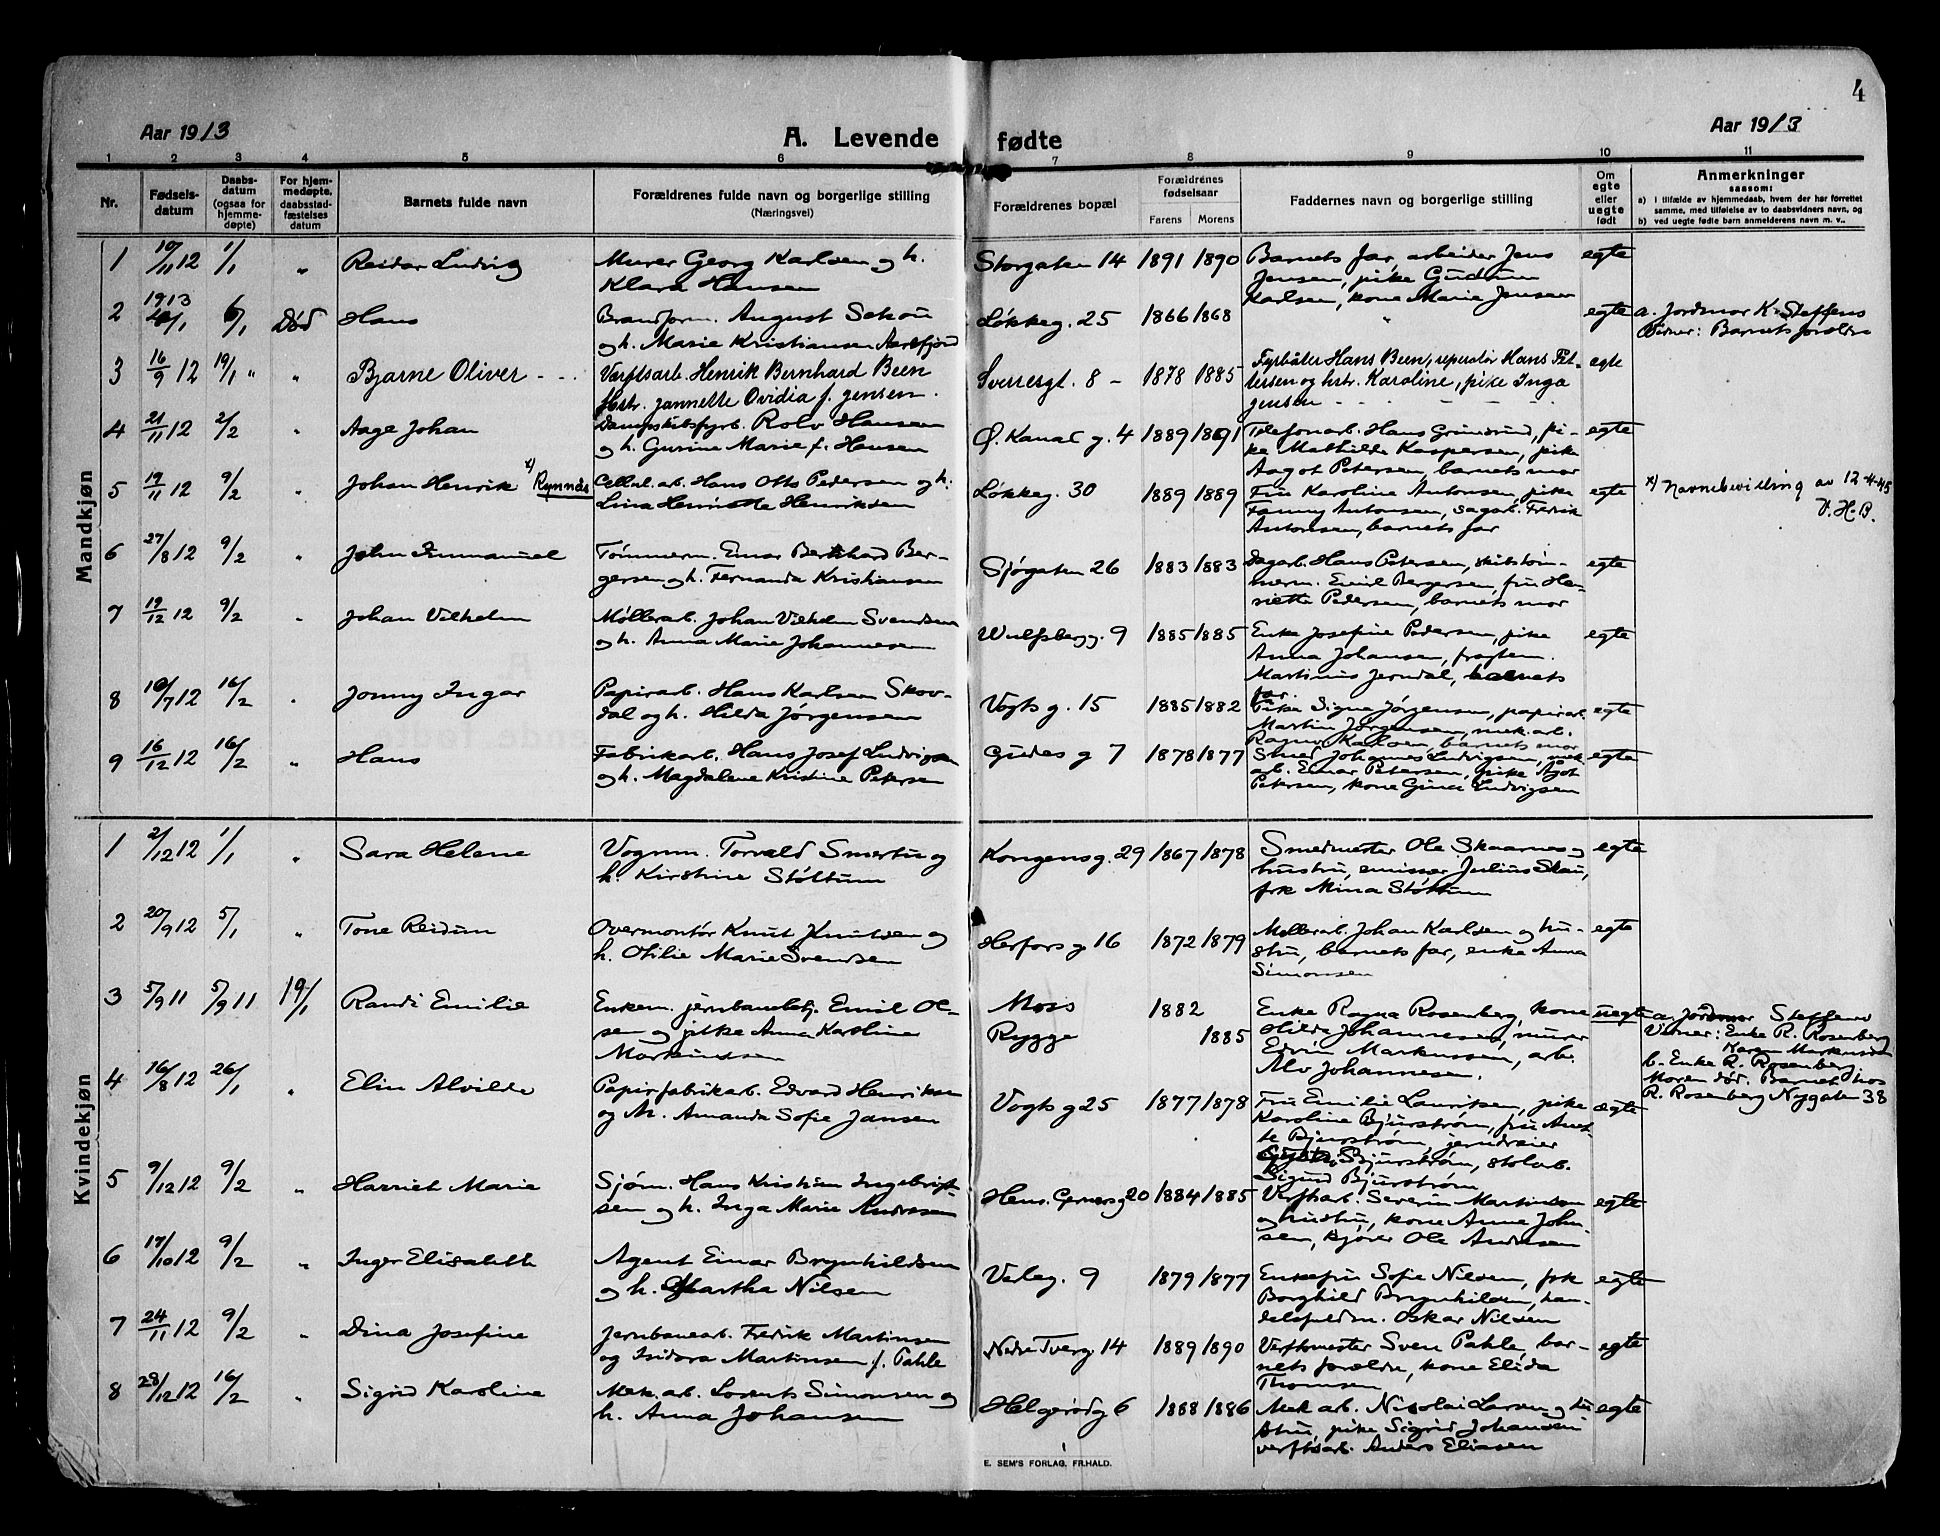 4
Aar 1913
A. Levende fødte
Aar 1913
1 2 3 4 5 6 7 8 9 10 11
Nr.
Fødsels-
datum
Daabs-
datum
(ogsaa for
hjemme-
døpte)
For hjem-
medøpte,
daabsstad-
fæstelses
datum
Barnets fulde navn
Forældrenes fulde navn og borgerlige stilling
(Næringsvei)
Forældrenes bopæl
Forældrenes
fødselsaar
Farens Morens
Faddernes navn og borgerlige stilling
Om
egte
eller
uegte
født
Anmerkninger
saasom:
a) I tilfælde av hjemmedaab, hvem der har forrettet
samme, med tilføielse av to daabsvidners navn, og
b) ved uegte fødte barn anmelderens navn m. v..
Mandkjøn
1 10/11 12 1/1 " Reidar Ludvig Murer Georg Karlsen og h. Storgaten 14 1891 1890 Barnets far, arbeider Jens egte
Klara Hansen Jensen, pike Gudrun
Karlsen, kone Marie Jensen
2 1913 6/1 Død Hans Brandform. August Schou Løkkeg. 25 1866 1868 " egte a. Jordmor K. Steffens
og h. Marie Kristiansen Vidner: Barnets foreldre
3 16/9 12 19/1 " " Bjarne Oliver - - - Værftsarb. Henrik Bernhard Been Sverresgt. 8 - 1878 1885 Fyrbøter Hans Been, reperatør Hans Pet- egte
hstr. Jannette Ovidia f. Jensen. tersen og hstr. Karoline, pike Inga
Jensen - - - -
4 21/11 12 2/2 " Aage Johan Dampskibsfyrb. Rolv Hansen Ø. Kanal g. 4 1889 1891 Telefonarb. Hans Grimsrud, pi- egte
og h. Gurine Marie f. Hansen ke Mathilde Kaspersen, pike
Aagot Petersen, barnets mor
5 19/11 12 9/2 " Johan Henrik x) Rynnås Cellul. arb. Hans Otto Pedersen og h. Løkkeg. 30 1889 1889 Fru Karoline Antonsen, pike egte x) Navnebevilling av 12-4-45
Lina Henriette Henriksen Fanny Antonsen, sagarb. Fredrik V.H.B.
Antonsen, barnets far
6 27/8 12 9/2 " John Immanuel Tømmerm. Einar Bernhard Ber- Sjøgaten 26 1883 1883 Dagarb. Hans Petersen, skibstøm- egte
gersen og h. Fernanda Kristiansen merm. Emil Bergersen, fru Hen-
riette Pedersen, barnets mor
7 19/12 12 9/2 " Johan Vilhelm Møllerarb. Johan Vilhelm Svendsen Wulfsbergg. 9 1885 1885 Enke Josefine Pedersen, pike egte
og h. Anna Marie Johannesen Anna Johansen, fragtem.
Martinus Jerndal, barnets
far.
8 10/7 12 16/2 " Jonny Ingar Papirarb. Hans Karlsen Skov- Vogts g. 15 1885 1882 Pike Signe Jørgensen, papirar. egte
dal og h. Hilda Jørgensen Martin Jørgensen, mek. arb.
Ragnv. Karlsen, barnets mor
9 16/12 12 16/2 " Hans Fabrikarb. Hans Josef Ludvigsen Gudes g 7 1878 1877 Smed Johannes Ludvigsen, mek. egte
og h. Magdalene Kristine Petersen arb. Einar Petersen, pike Agot
Petersen, kone Gina Ludvigsen
Kvindekjøn
1 2/12 12 1/1 " Sara Helene Vognm. Torvald Smertu og Kongensg. 29 1867 1878 Smedmester Ole Skaarnes og egte
h. Kirstine Støttum hustru, emissær Julius Skau,
frk Mina Støttum
2 20/9 12 5/1 " Tone Reidun Overmontør Knut Knutsen og Herfors g 16 1872 1879 Møllerarb. Johan Karlsen og hu- egte
h. Otilie Marie Svendsen stru, barnets far, enke Anna
Simonsen
3 5/9 11 5/9 11 19/1 Randi Emilie Enkem. jernbanebtj. Emil Ol- Moss 1882 Enke Ragna Rosenberg, kone uegte a. Jordmor Steffens
sen og pike Anna Karoline Rygge 1885 Hilda Johannesen, murer Vidner: Enke R. Rosenberg
Markussen Edvin Markussen, arb. Maren Markussen
Alv Johannesen. b. Enke R. Rosenberg
Moren død. Barnet hos
R. Rosenberg Nygaten 38
4 16/8 12 26/1 " Elin Alvilde Papirfabrikarb. Edvard Henriksen Vogts g 25 1877 1878 Fru Emilie Lauritsen, pike ægte
og h. Amanda Sofie Jansen Karoline Bjurstrøm, fru Anet-
te Bjurstrøm, jerndreier
Bjurstrøm, stolarb.
Sigurd Bjurstrøm
5 9/12 12 9/2 " Harriet Marie Sjøm. Hans Kristian Ingebrigt- Hens. Gerners g 20 1884 1885 Verftsarb. Severin Martinsen egte
sen og h. Inga Marie Andresen og hustru, kone Anne John-
sen, kjører Ole Andresen
6 17/10 12 9/2 " Inger Elisabeth Agent Einar Brynhildsen Valeg. 9 1879 1877 Enkefru Sofie Nilsen, frk egte
og h. Martha Nilsen Borghild Brynhildsen, han-
delsfuldm. Oskar Nilsen
7 24/11 12 9/2 " Dina Josefine Jernbanearb. Fredrik Martinsen Nedre Tverg 14 1889 1890 Verftmester Sven Pahle, bar- egte
og Isidora Martinsen f. Pahle nets forældre, kone Elida
Thomsen
8 28/12 12 16/2 " Sigrid Karoline Mek. arb. Lorents Simonsen og Helgerødg 6 1888 1886 Mek arb. Nicolai Larsen og hu egte
h. Anna Johansen stru, pike Sigrid Johansen
verftsarb. Anders Eliasen
E. SEM'S FORLAG, FR.HALD.